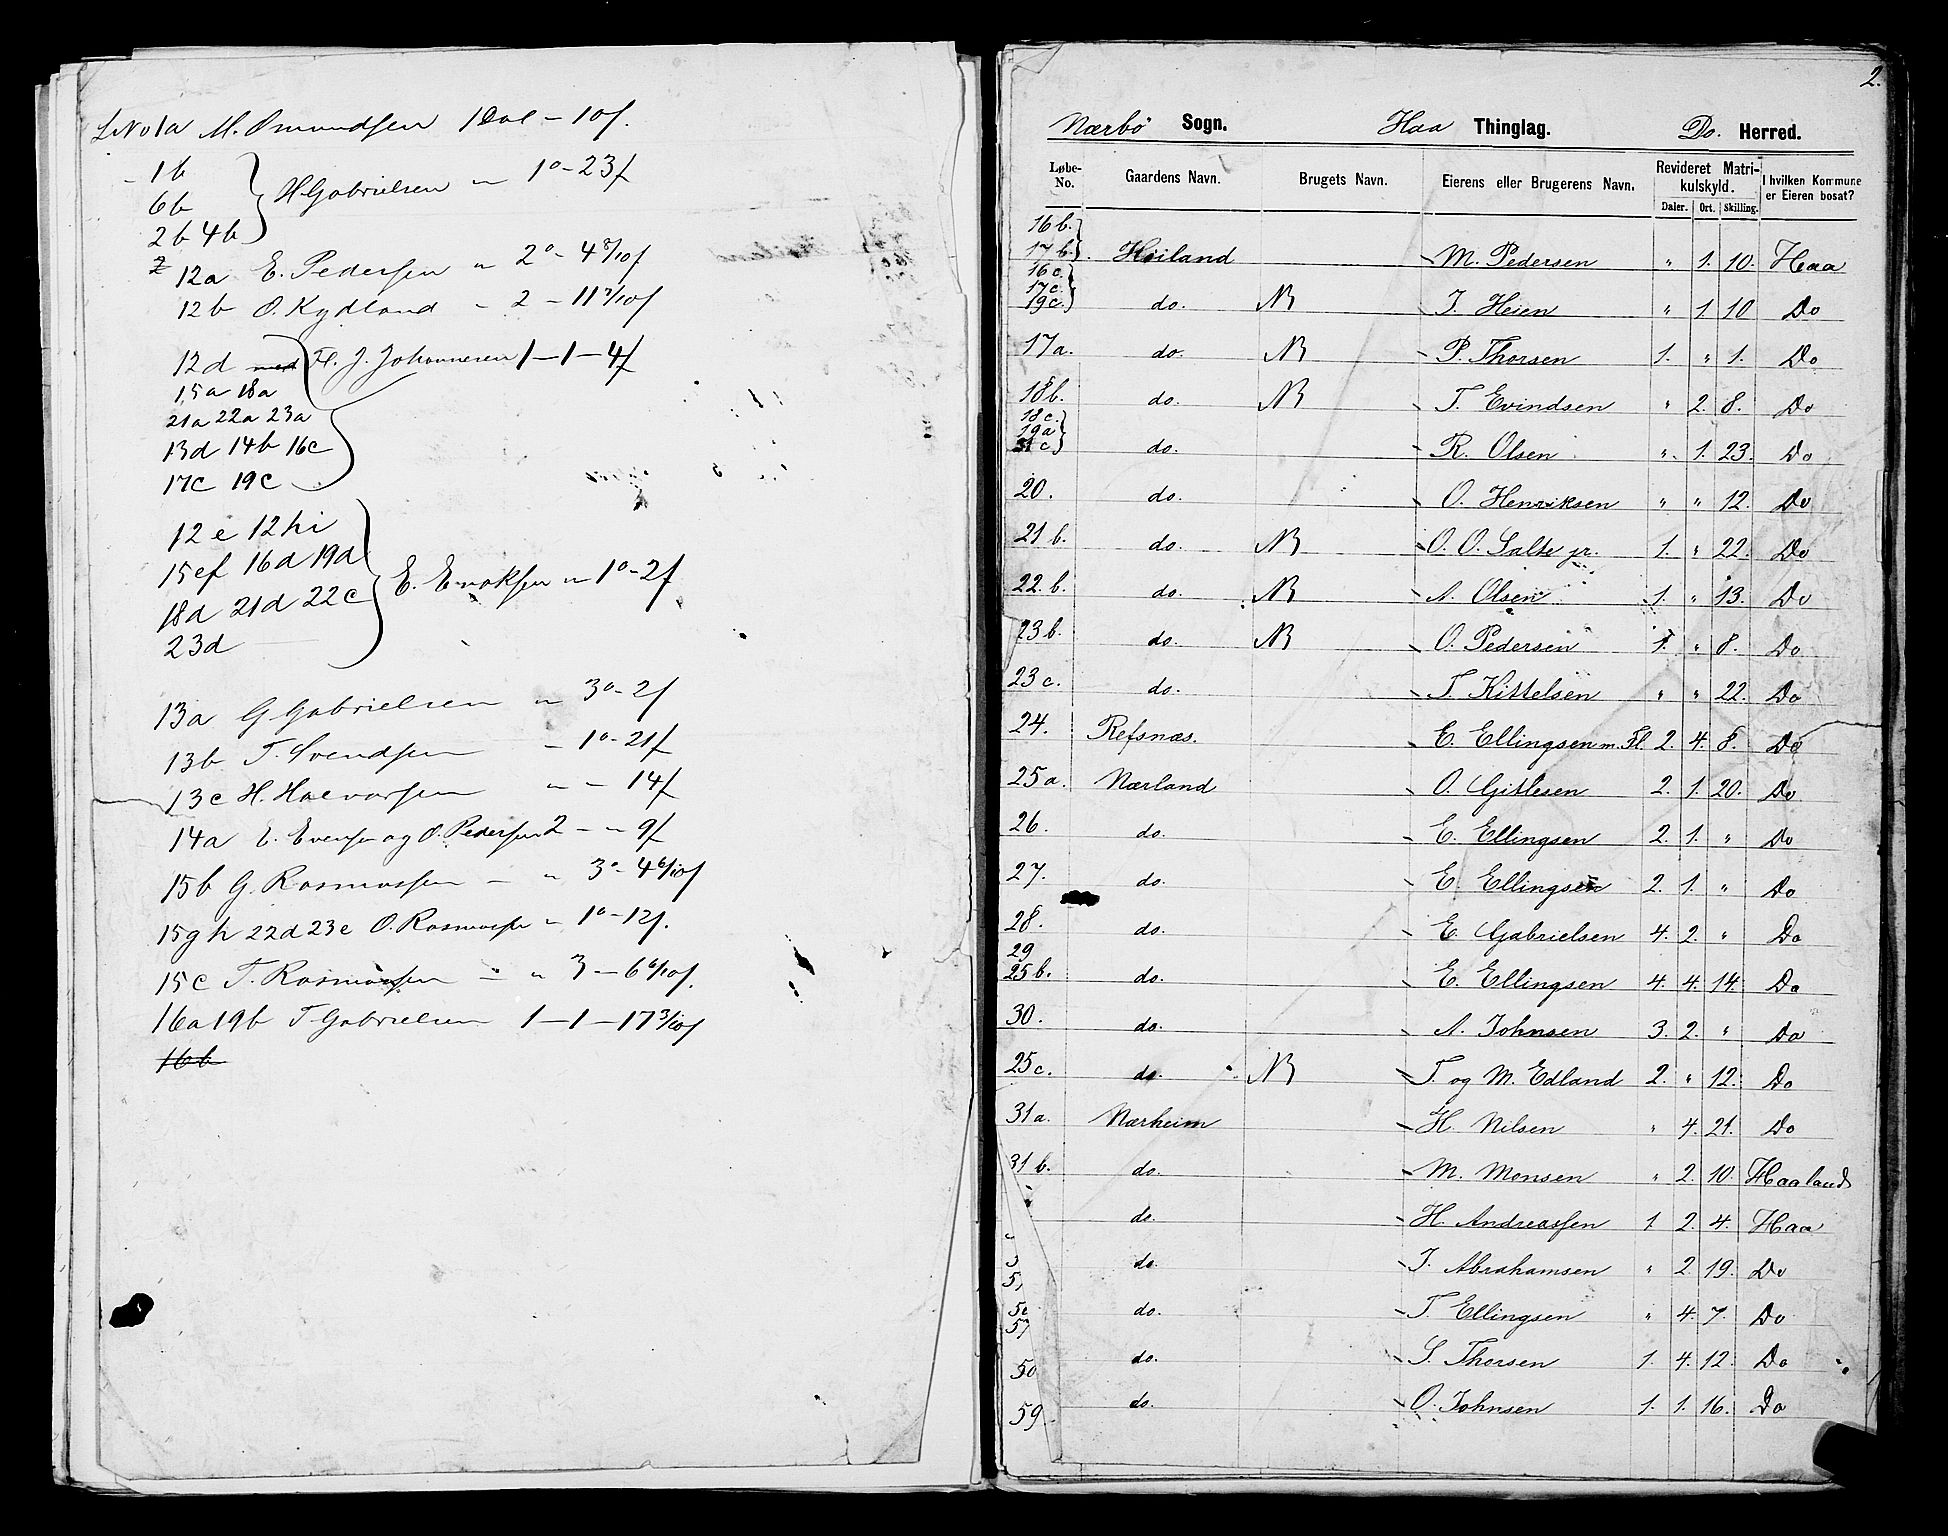 LNo 1a M. Omundsen 1 Dal - 10 f.
1b
6b H Gabrielsen " 1° - 23 f
2b 4b
12a E. Pedersen " 2° - 4 8/10 f
12b O. Kydland - 2 - 11 3/10 f
12d med H. J. Johannesen 1 - 1 - 4 f
15a 18a
21a 22a 23a
13d 14b 16c
17c 19c
12e 12hi
15ef 16d 19d
E. Enoksen " 1° - 2 f
18d 21d 22c
23d
13a G Gabrielsen " 3° - 2 f
13b T. Svendsen - 1° - 21 f
13c H. Halvorsen " - 14 f
14a E. Evensen og O. Pedersen 2 - " 9 f
15b G. Rasmussen - " 3° - 4 6/10 f
15gh 22d 23e O. Rasmussen " 1° - 12 f.
15c T. Rasmussen - " 3 - 6 6/10 f.
16a 19b T Gabrielsen 1 - 1 - 17 3/10 f
16b
2.
Nærbö Sogn. Haa Thinglag. Do. Herred.
Løbe-No. Gaardens Navn. Brugets Navn. Eierens eller Brugerens Navn. Revideret Matrikulskyld. I hvilken Kommune er Eieren bosat?
Daler. Ort. Skilling.
16b.
17b. Høiland M. Pedersen " 1. 10. Haa
16c.
17c.
19c. do. NB I. Heien " 1. 10 Do
17a. do. NB P. Thorsen 1. " 1. Do
18b. do. NB T. Evindsen " 2. 8. Do
18c.
19a
21c do. R. Olsen ". 1. 23. Do
20. do. O. Henriksen " " 12. Do
21b. do. NB O. O. Salte jr. 1. " 22. Do
22.b. do. NB A. Olsen 1. " 13. Do
23b. do. NB O. Pedersen 1. " 8. Do
23c. do. T Kittelsen " " 22. Do
24. Refsnæs. E. Ellingsen m. Fl. 2. 4. 8. Do
25a. Nærland O. Gitlesen 2. 1. 20. Do
26. do. E. Ellingsen 2. 1. " Do
27. do. E. Ellingsen 2. 1. " Do
28. do. E. Gabrielsen 4. 2. " Do
29
25b. do. E. Ellingsen 4. 4. 14. Do
30. do. A. Johnsen 3. 2. " Do
25c. do. NB T. og M. Edland 2. " 12. Do
31a. Nærheim H. Nilsen " 4. 21. Do
31b. do. M. Monsen " 2. 10. Haaland
do. H. Andreassen 1. 2. 4. Haa
do. I. Abrahamsen " 2. 19. Do
do. T. Ellingsen " 4. 7. Do
50 do. S. Thorsen 1. 4. 12. Do
59 do. O. Johnsen 1. 1. 16. Do